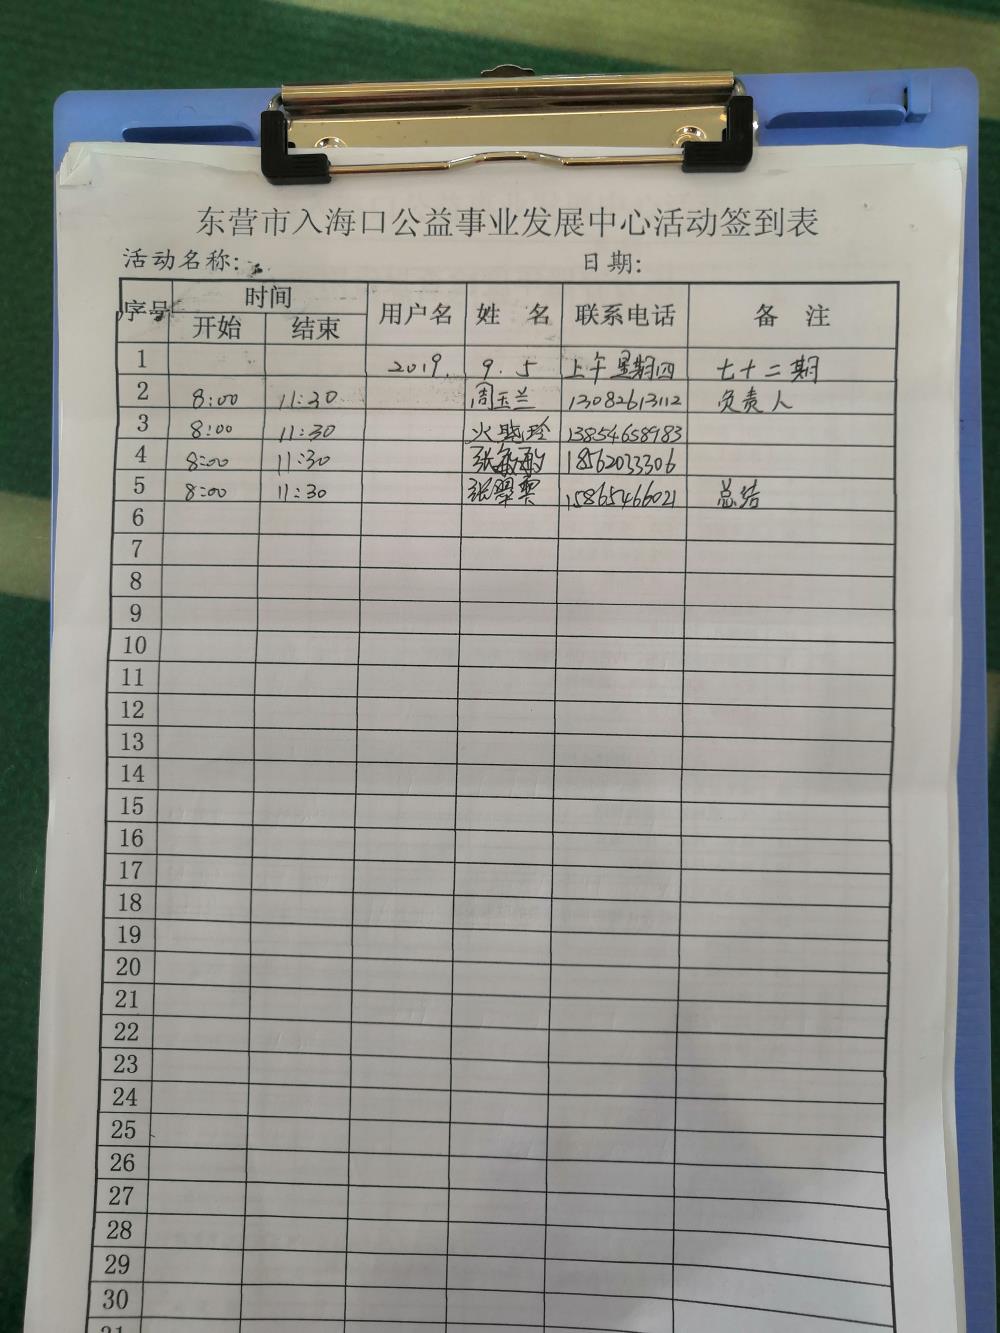 东营市入海口公益事业发展中心活动签到表
活动名称: 日期:
序号 时间 用户名 姓 名 联系电话 备 注
开始 结束
1 2019. 9. 5 上午 星期四 七十二期
2 8:00 11:30 周玉兰 13082613112 负责人
3 8:00 11:30 13854658983
4 8:00 11:30 18562033306
5 8:00 11:30 张翠 15865466021 总结
6
7
8
9
10
11
12
13
14
15
16
17
18
19
20
21
22
23
24
25
26
27
28
29
30
31